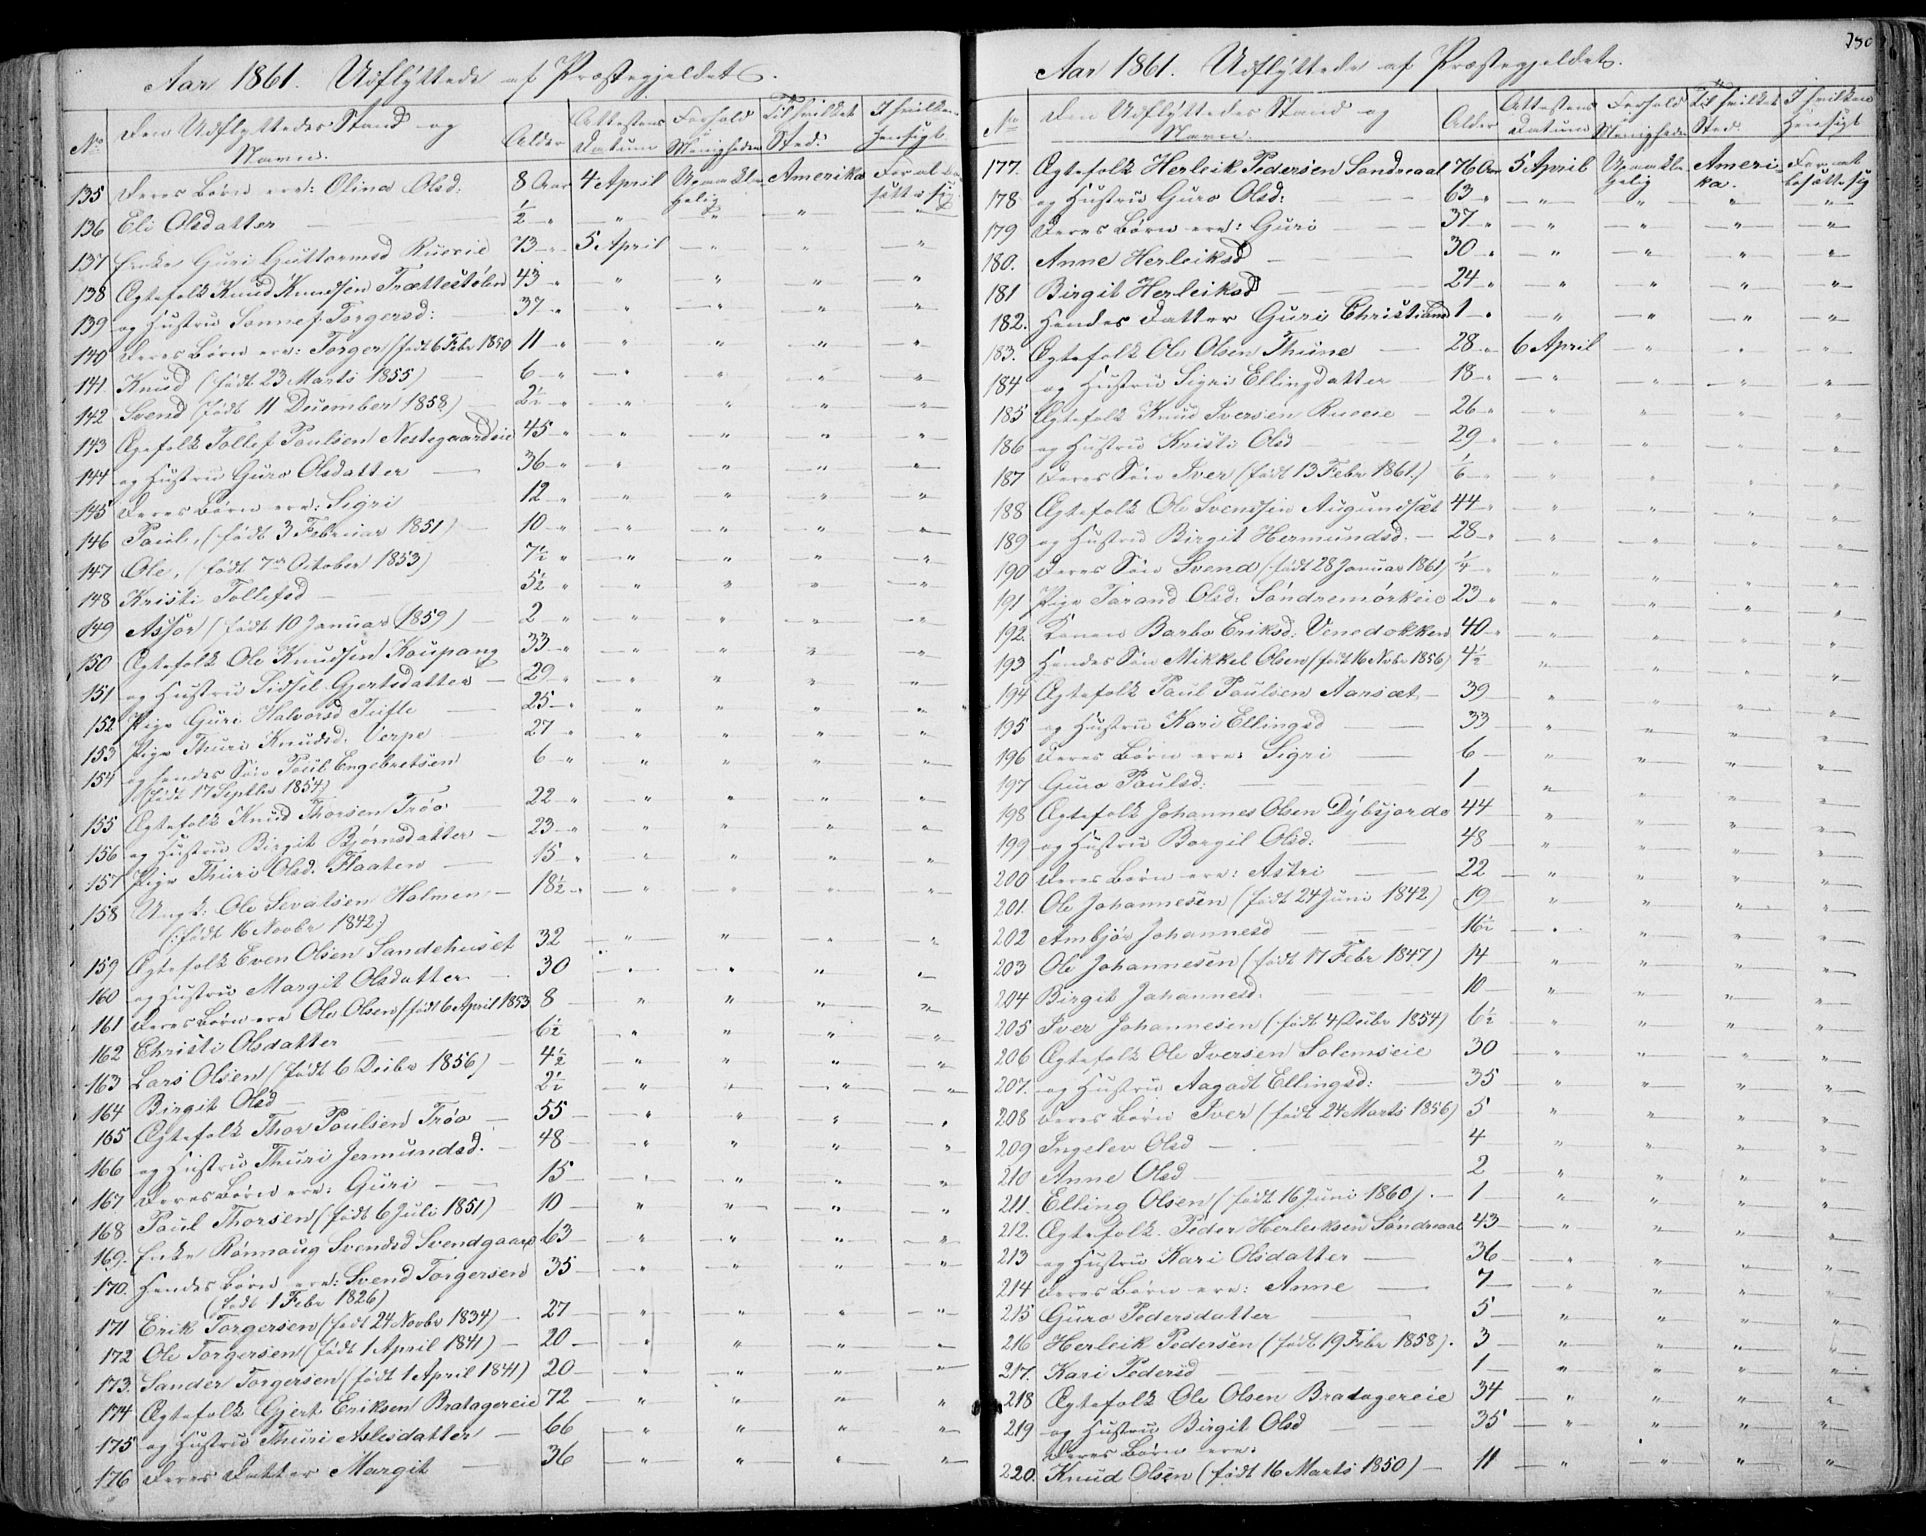 Aar 1861. Udflyttede af Præstegjeldet.
No. Den Udflyttedes Stand og Navn. Alder Attestens Datum Forhold i Menigheden Til hvilket Sted: I hvilken Hensigt.
135 Deres Børn ere: Olina Olsd. 8 Aar 4 April Upaaklagelig Amerika For at bosætte sig
136 Eli Olsdatter — ½ " — " — " — " — "
137 Enke Guri Guttormsd Rueeie 73 — " 5 April — " — " — "
138 Ægtefolk Knud Knudsen Trættestølen 43 " — " " " "
139 og Hustru Sønnef Torgersd: 37 " " " " "
140 Deres Børn ere: Torger (født 6 Febr 1850 11 " — " " " "
141 Knud (født 23 Marts 1855) 6 " — " " " "
142 Svend (født 11 December 1858) 2½ " — " " " "
143 Ægefolk Tollef Paulsen Nestegaardeie 45 " — " " " "
144 og Hustru Guro Olsdatter — 36 " — " " " "
145 Deres Børn ere: Sigri 12 " — " " " "
146 Paul, (født 3 Februar 1851) 10 " — " " " "
147 Ole, (født 7de October 1853) 7½ " — " " " "
148 Kristi Tollefsd — 5½ " " " " "
149 Assor (født 10 Januar 1859) — 2 " — " " " "
150 Ægtefolk Ole Knudsen Kaupang 33 " — " " " "
151 og Hustru Sidsel Gjertsdatter — 29 " — " " " "
152 Pige Guri Halvorsd Tufte 25 " " " " "
153 Pige Thuri Knudsd. Verpe 27 " " " " "
154 og hendes Søn Paul Engebretsen 6 " " " " "
(født 17 Septbr 1854)
155 Ægtefolk Knud Thorsen Trøo 22 " — " " " "
156 og Hustru Birgit Bjørnsdatter — 23 " — " " " "
157 Pige Thuri Olsd. Flaaten 15 " — " " " "
158 Ungk: Ole Sevalsen Holmen — 18½ " — " " " "
(:født 16 Novbr 1842)
159 Ægtefolk Even Olsen Sandehuset 32 " — " " "
160 og Hustru Margit Olsdatter 30 " " " "
161 Deres Børn ere Ole Olsen (født 6 April 1853 8 — " " " "
162 Christi Olsdatter 6½ " " " "
163 Lars Olsen (født 6 Decbr 1856) — 4½ " " " "
164 Birgit Olsd — 2½ " " " "
165 Ægtefolk Thor Paulsen Trøo 55 — " " " "
166 og Hustru Thuri Jermundsd. — 48 — " " " "
167 Deres Børn ere: Guri — 15 — " " " "
168 Paul Thorsen (født 6 Juli 1851) 10 — " " " "
169. Enke Rønnaug Svendsd Svendgaard 63 — " " " "
170. Hendes Børn ere: Svend Torgersen 35 — " " " "
(født 1 Febr 1826)
171 Erik Torgersen (født 24 Novbr 1834) 27 — " " " "
172 Ole Torgersen (født 1 April 1841) — 20 — " " " "
173. Sander Torgersen (født 1 April 1841) 20 — " " " "
174 Ægtefolk Gjert Eriksen Bratagereie 72 — " " " "
175 og Hustru Thuri Aslesdatter — 66 — " " " "
176 Deres Datter Margit — 36 — " " " "
Aar 1861. Udflyttede af Præstegjeldet. 130
No Den Udflyttedes Stand og Navn. Alder Attestens Datum Forhold i Menigheden Til hvilket Sted. I hvilken Hensigt
177. Ægtefolk Herleik Pedersen Sondreaal 76 Aar 5 April Upaaklagelig Amerika. For at bosætte sig
178 og Hustru Guro Olsd: 63 " — " " " "
179 Deres Børn ere: Guri 37 " — " " " "
180. Anne Herleiksd 30 " — " " " "
181 Birgit Herleiksd 24 " — " " " "
182. Hendes Datter Guri Christiansd 1 — " " " "
183. Ægtefolk Ole Olsen Thune — 28 " 6 April — " " "
184 og Hustru Sigri Ellingdatter 18 " — " " " "
185 Ægtefolk Knud Iversen Rueeie — 26 " — " " " "
186 og Hustru Kristi Olsd — 29 " — " " " "
187 Deres Søn Iver (født 13 Febr 1861.) 1/6 — " " " "
188 Ægtefolk Ole Svendsen Augundsæt 44 " — " " " "
189 og Hustru Birgit Hermundsd. — 28 " — " " " "
190 Deres Søn Svend (født 28 Januar 1861) ¼ " — " " " "
191 Pige Tarand Olsd. Søndremørkeie 23 " — " " " "
192. Konen Barbo Eriksd. Venedokken 40 " — " " " "
193 Hendes Søn Mikkel Olsen (født 16 Novbr 1856) 4½ " " " "
194 Ægtefolk Paul Paulsen Aarsæt — 39 " " " "
195 og Hustru Kari Ellingsd 33 " " " "
196 Deres Børn ere: Sigri 6 — " " " "
197 Guro Paulsd: 1 — " " " "
198 Ægtefolk Johannes Olsen Dybsjordo 44 — " " " "
199 og Hustru Borgil Olsd: 48 — " " " "
200 Deres Børn ere: Astri 22 — " " " "
201. Ole Johannesen (født 24 Juni 1842) 19 — " " " "
202 Ambjør Johannesd 16½ — " " " "
203 Ole Johannesen (født 17 Febr 1847) 14 — " " " "
204 Birgit Johannesd. 10 — " " " "
205 Iver Johannesen (født 4 Decbr 1854) 6½ — " " " "
206 Ægtefolk Ole Iversen Solemseie 30 — " " " "
207. og Hustru Aagadt Ellingsd: 35 — " " " "
208 Deres Børn Iver (født 24 Marts 1856) 5 — " " " "
209 Ingelev Olsd — 4 " " " "
210 Anne Olsd 2 " " " "
211. Elling Olsen (født 16 Juni 1860). — 1 — " " " "
212. Ægtefolk Peder Herleiksen Søndreaal 43 — " " " "
213 og Hustru Kari Olsdatter — 36 — " " " "
214 Deres Børn ere: Anne — 7 — " " " "
215 Guro Pedersdatter 5 — " " " "
216 Herleik Pedersen (født 19 Febr 1858). 3 — " " " "
217. Kari Pedersd — 1 — " " " "
218 Ægtefolk Ole Olsen Bratagereie 34 — " " " "
219 og Hustru Birgit Olsd 35 — " " " "
Deres Børn ere.
220. Knud Olsen (født 16 Marts 1850) — 11 — " " " "